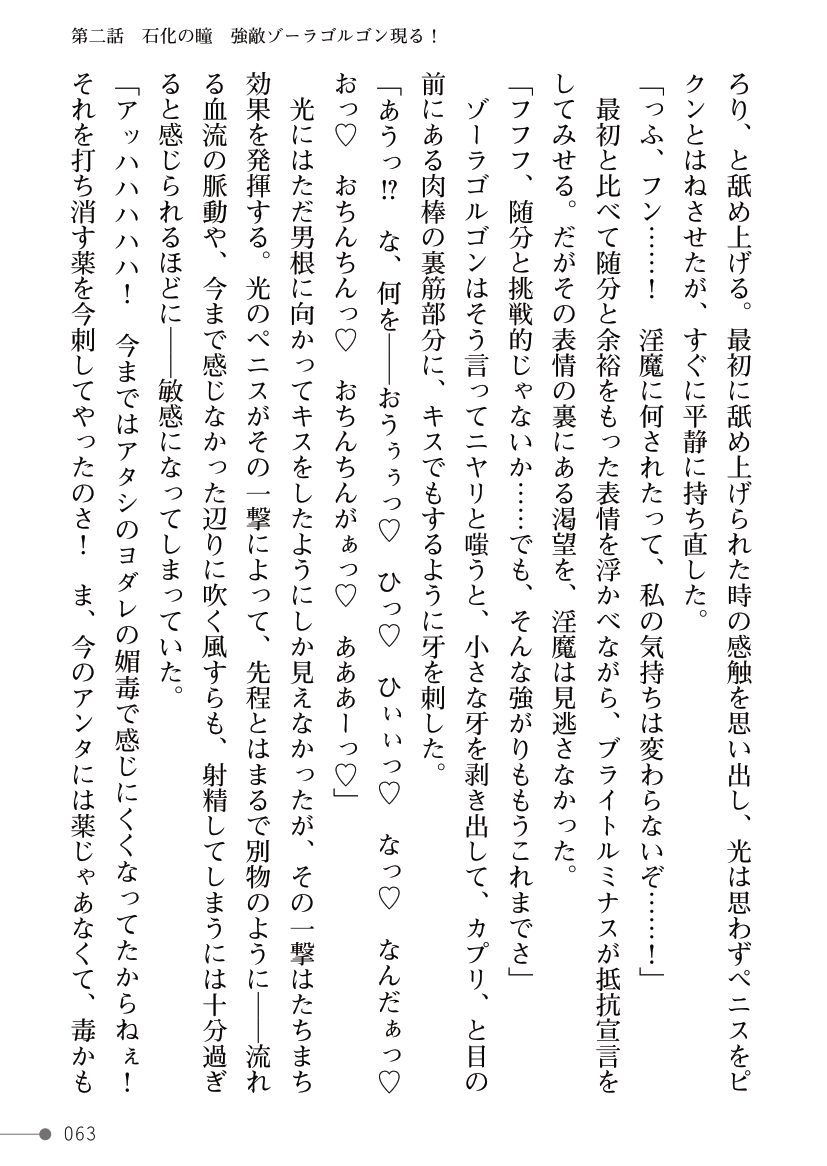 第二話　石化の瞳　強敵ゾーラゴルゴン現る！
ろり、と舐め上げる。最初に舐め上げられた時の感触を思い出し、光は思わずペニスをピ
クンとはねさせたが、すぐに平静に持ち直した。
「っふ、フン……！　淫魔に何されたって、私の気持ちは変わらないぞ……！」
　最初と比べて随分と余裕をもった表情を浮かべながら、ブライトルミナスが抵抗宣言を
してみせる。だがその表情の裏にある渇望を、淫魔は見逃さなかった。
「フフフ、随分と挑戦的じゃないか……でも、そんな強がりももうこれまでさ」
　ゾーラゴルゴンはそう言ってニヤリと嗤うと、小さな牙を剥き出して、カプリ、と目の
前にある肉棒の裏筋部分に、キスでもするように牙を刺した。
「あうっ⁉　な、何を――おうぅぅっ♡　ひっ♡　ひぃぃっ♡　なっ♡　なんだぁっ♡
おっ♡　おちんちんっ♡　おちんちんがぁっ♡　あああーっ♡」
　光にはただ男根に向かってキスをしたようにしか見えなかったが、その一撃はたちまち
効果を発揮する。光のペニスがその一撃によって、先程とはまるで別物のように――流れ
る血流の脈動や、今まで感じなかった辺りに吹く風すらも、射精してしまうには十分過ぎ
ると感じられるほどに――敏感になってしまっていた。
「アッハハハハハ！　今まではアタシのヨダレの媚毒で感じにくくなってたからねぇ！
それを打ち消す薬を今刺してやったのさ！　ま、今のアンタには薬じゃあなくて、毒かも
063